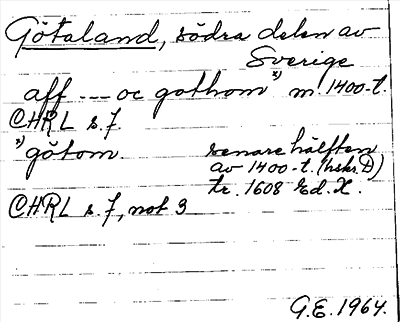 Götaland, södra delen av
Sverige
aff --- oc gothom x) m. 1400-t.
CHRL s. 7.
x) götom. senare hälften
av 1400-t. (hskr. D)
tr. 1608 Ed. X.
CHRL s. 7, not 3
G.E. 1964.